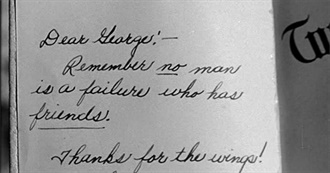 Dear George:—
Remember no man
is a failure who has
friends.
Thanks for the wings!